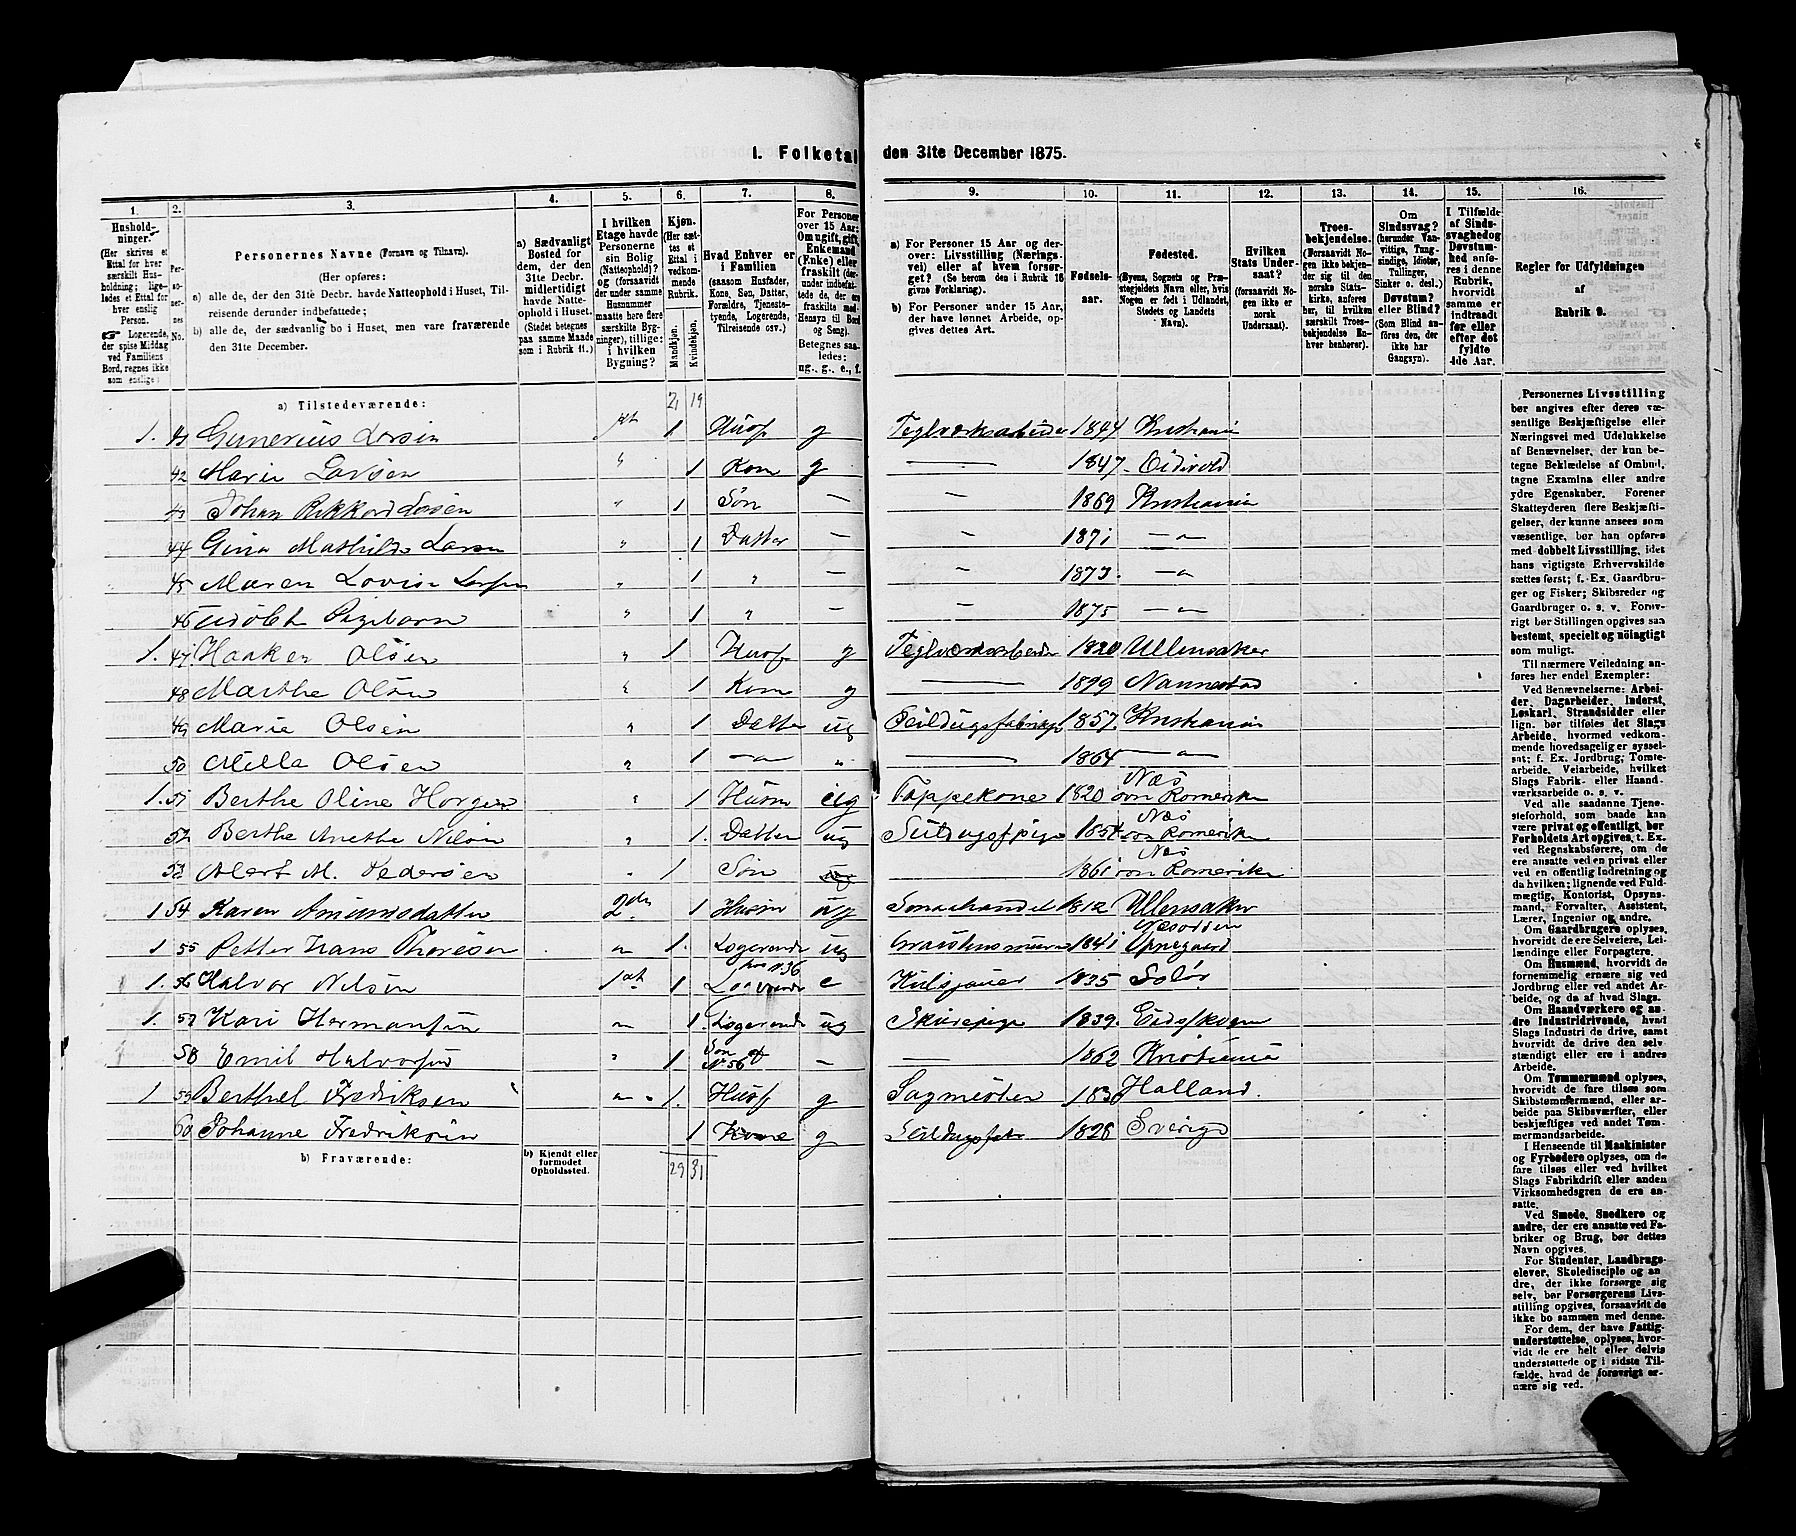 I. Folketal den 31te December 1875.
1. 2. 3. 4. 5. 6. 7. 8. 9. 10. 11. 12. 13. 14. 15. 16.
Husholdninger. (Her skrives et Ettal for hver særskilt Husholdning; ligeledes et Ettal for hver enslig Person. Logerende, der spise Middag ved Familiens Bord, regnes ikke som enslige.)
Personernes No.
Personernes Navne (Fornavn og Tilnavn).
(Her opføres:
a) alle de, der den 31te Decbr. havde Natteophold i Huset, Tilreisende derunder indbefattede;
b) alle de, der sædvanlig bo i Huset, men vare fraværende den 31te December.
a) Sædvanligt Bosted for dem, der den 31te Decbr. midlertidigt havde Natteophold i Huset. (Stedet betegnes paa samme Maade som i Rubrik 11.)
I hvilken Etage havde Personerne sin Bolig (Natteophold)? og (forsaavidt der under samme Husnummer maatte høre flere særskilte Bygninger), tillige: i hvilken Bygning?
Kjøn. (Her sættes et Ettal i vedkommende Rubrik.
Mandkjøn. Kvindekjøn.
Hvad Enhver er i Familien (saasom Husfader, Kone, Søn, Datter, Forældre, Tjenestetyende, Logerende, Tilreisende osv.)
For Personer over 15 Aar: Om ugift, gift, Enkemand (Enke) eller fraskilt (derunder indbefattede de, der ere fraskilte med Hensyn til Bord og Seng). Betegnes saaledes: ug., g., e., f.
a) For Personer 15 Aar og derover: Livsstilling (Næringsvei) eller af hvem forsørget? (Se herom den i Rubrik 16 givne Forklaring.)
b) For Personer under 15 Aar, der have lønnet Arbeide, opgives dettes Art.
Fødselsaar.
Fødested. (Byens, Sognets og Præstegjeldets Navn eller, hvis Nogen er født i Udlandet, Stedets og Landets Navn).
Hvilken Stats Undersaat? (forsaavidt Nogen ikke er norsk Undersaat).
Troesbekjendelse. (Forsaavidt Nogen ikke bekjender sig til den norske Statskirke, anføres her, til hvilken særskilt Troesbekjendelse Enhver henhører).
Om Sindssvag? (herunder Vanvittige, Tungsindige, Idioter, Tullinger, Sinker o. desl.) Døvstum? eller Blind? (Som Blind anføres den, der ikke har Gangsyn).
I Tilfælde af Sindssvaghed og Døvstumhed anføres i denne Rubrik, hvorvidt samme er indtraadt før eller efter det fyldte 4de Aar.
Regler for Udfyldningen af Rubrik 9.
a) Tilstedeværende: 21 19
1. 41 Gunerius Larsen 1st 1 Husf g Teglværksarbeider 1844 Kristiania
42 Marie Larsen " 1 Kone g — 1847 Eidsvold
43 Johan Rikkard Larsen " 1 Søn — — 1869 Kristiania
44 Gina Mathilde Larsen " 1 Datter — — 1871 — " —
45 Maren Lovise Larsen " 1 " — — 1873 — " —
46 1 " — — 1875 — " —
1. 47 Haaken Olsen " 1 Husf g Teglværksarbeider 1820 Ullensaker
48 Marthe Olsen " 1 Kone g — Nannestad
49 Marie Olsen " 1 Datter ug Seildugsfabrikp. 1857 Kristiania
50 Milla Olsen " 1 — " — " — 1864 — " —
1. 51 Berthe Oline Horgen " 1 Husm ug Tappekone 1820 Næs øvr Romerike
52 Berthe Anethe Nilsen " 1 Datter ug Seildugsfpige 1854 Næs øvr Romerike
53 Albert M. Pedersen " 1 Søn 1861 Næs øvr Romerike
1 54 Karen Amundsdatter 2den 1 Husm ug Smaahandel 1812 Ullensaker
1 55 Petter Hans Thoresen " 1 Logerende ug Graastensmurer 1841 Næsodden Oppegaard
1. 56 Halvor Nilsen 1st 1 Logerende hos No 36 e Kulsjauer 1835 Solør
1. 57 Kari Hermansen " 1 Logerende ug Skurepige 1839 Eidskogen
58 Emil Halvorsen " 1 Søn No 56 — — 1862 Kristiania
1 59 Berthel Fredriksen " 1 Husf g Sagmester 1830 Halland
60 Johanne Fredriksen 1 Kone g Seildugsfabr 1826 Sverige
b) Fraværende: b) Kjendt eller formodet Opholdssted. 29 31
Personernes Livsstilling bør angives efter deres væsentlige Beskjæftigelse eller Næringsvei med Udelukkelse af Benævnelser, der kun betegne Beklædelse af Ombud, tagne Examina eller andre ydre Egenskaber. Forener Skatteyderen flere Beskjæftigelser, der kunne ansees som væsentlige, bør han opføres med dobbelt Livsstilling, idet hans vigtigste Erhvervskilde sættes først; f. Ex. Gaardbruger og Fisker; Skibsreder og Gaardbruger o. s. v. Forøvrigt bør Stillingen opgives saa bestemt, specielt og nöiagtigt som muligt.
Til nærmere Veiledning anføres her endel Exempler:
Ved Benævnelserne: Arbeider, Dagarbeider, Inderst, Løskarl, Strandsidder eller lign. bør tilføies det Slags Arbeide, hvormed vedkommende hovedsagelig er sysselsat; f. Ex. Jordbrug; Tomtearbeide, Veiarbeide, hvilket Slags Fabrik- eller Haandværksarbeide o. s. v.
Ved alle saadanne Tjenesteforhold, som baade kan være privat og offentligt, bør Forholdets Art opgives, t. Ex. ved Regnskabsførere, om de ere ansatte ved en privat eller ved en offentlig Indretning og da hvilken; lignende ved Fuldmægtig, Kontorist, Opsynsmand, Forvalter, Assistent, Lærer, Ingeniør og andre.
Om Gaardbrugere oplyses, hvorvidt de ere Selveiere, Leilændinge eller Forpagtere.
Om Husmænd, hvorvidt de fornemmelig ernære sig ved Jordbrug eller ved andet Arbeide, og da af hvad Slags.
Om Haandværkere og andre Industridrivende, hvad Slags Industri de drive, samt hvorvidt de drive den selvstændigt eller ere i andres Arbeide.
Om Tømmermænd oplyses, hvorvidt de fare tilsøs som Skibstømmermænd, eller arbeide paa Skibsværfter, eller beskjæftiges ved andet Tømmermandsarbeide.
I Henseende til Maskinister og Fyrbødere oplyses, om de fare tilsøs eller ved hvilket Slags Fabrikdrift eller anden Virksomhedsgren de ere ansatte.
Ved Smede, Snedkere og andre, der ere ansatte ved Fabriker og Brug, bør dettes Navn opgives.
For Studenter, Landbrugselever, Skoledisciple og andre, der ikke forsørge sig selv, bør Forsørgerens Livsstilling opgives, forsaavidt de ikke bo sammen med denne.
For dem, der have Fattigunderstøttelse, oplyses, hvorvidt de ere helt eller delvis understøttede og i sidste Tilfælde, hvad de forøvrigt ernære sig ved.